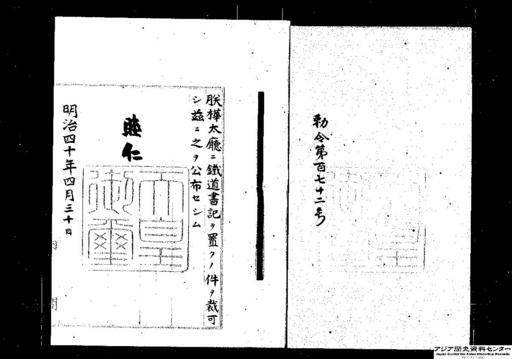 勅令第百七十二号
朕樺太廳ニ鐵道書記ヲ置クノ件ヲ裁可
シ茲ニ之ヲ公布セシム
睦仁
天皇御璽
明治四十年四月三十日
アジア歴史資料センター
Japan Center for Asian Historical Records